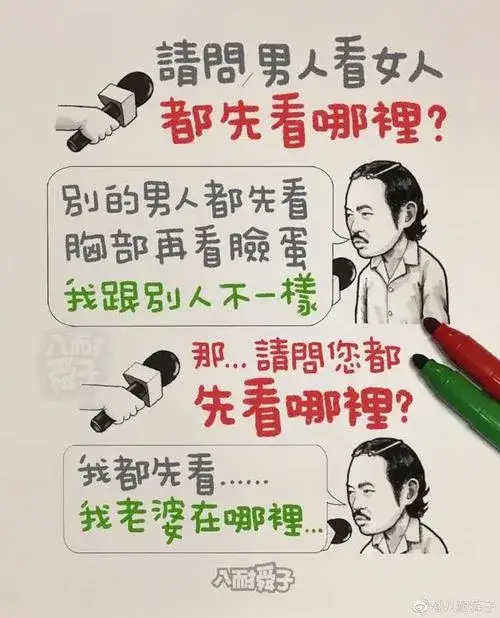 請問,男人看女人
都先看哪裡?
別的男人都先看
胸部再看臉蛋
我跟別人不一樣
八耐舜子
那...請問您都
先看哪裡?
我都先看......
我老婆在哪裡...
八耐舜子
@八耐舜子